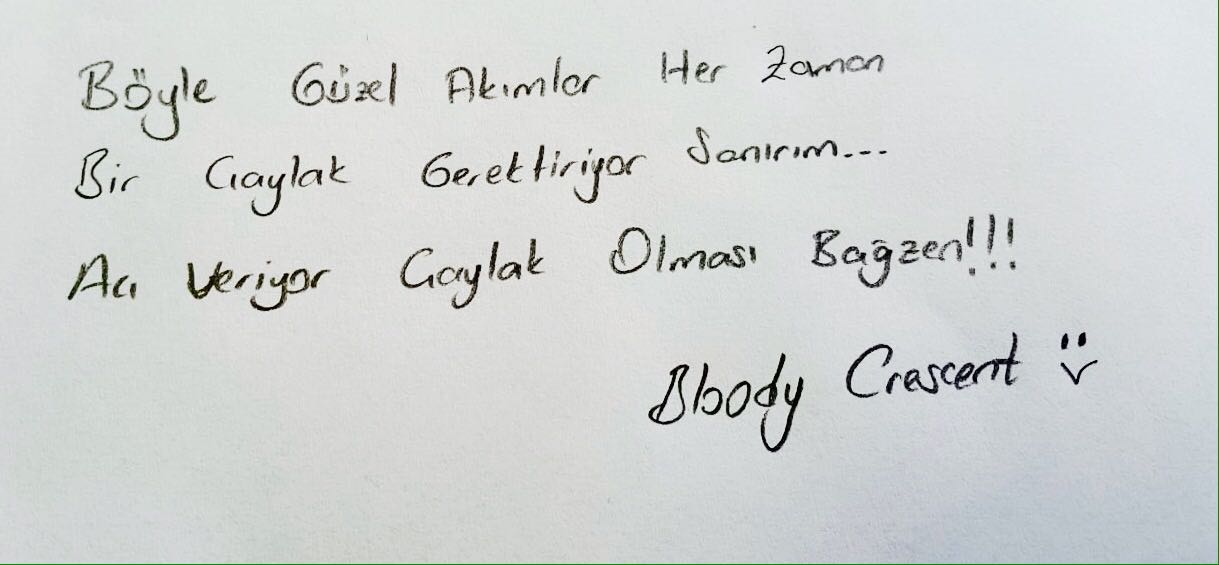 Böyle Güzel Akımlar Her Zaman
Bir Gaylak Gerektiriyor Sanırım...
Acı Veriyor Gaylak Olması Bağzen!!!
Bloody Crescent